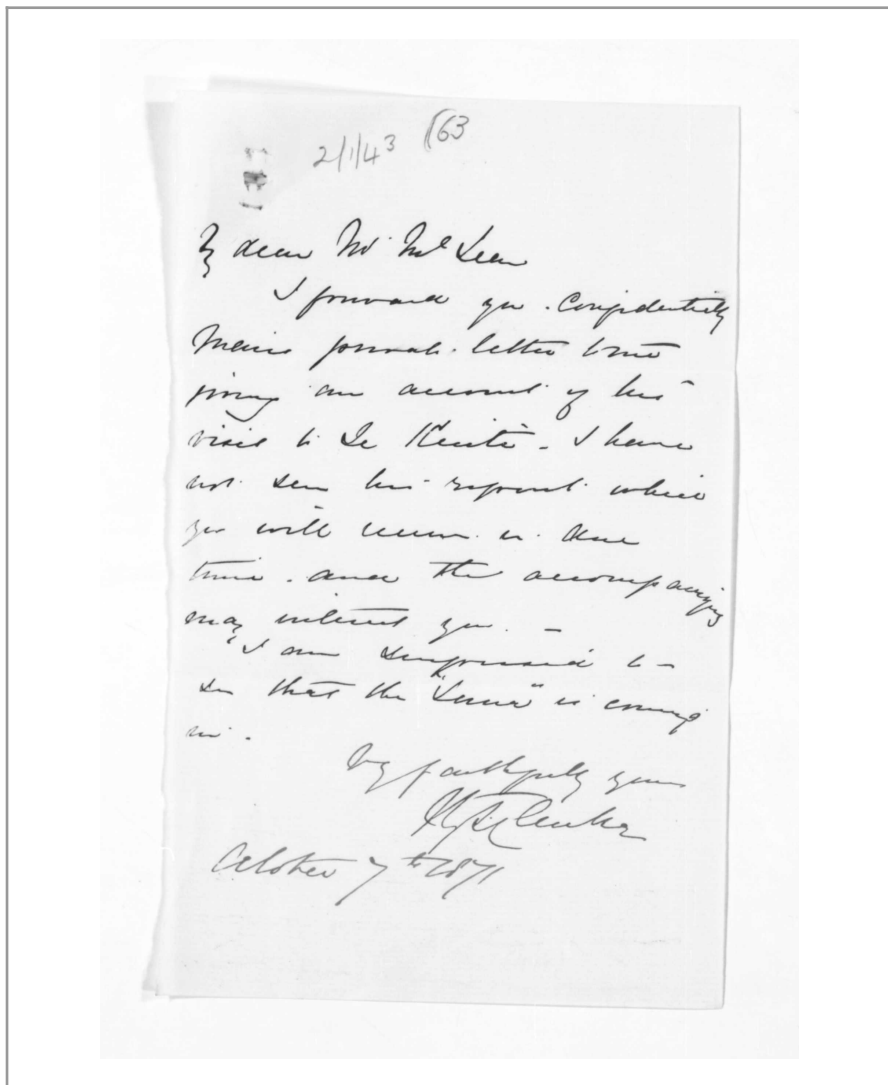 2/1/43 (63
My dear Mr McLean
I forward you confidentially
Mair's private letter to me
giving an account of his
visit to Te Kuiti - I have
not seen his report which
you will receive in due
time. and the accompanying
may interest you. -
I am surprised to
see that the "Luna" is coming
in.
Very faithfully yours
H T Clarke
October 7th 1871